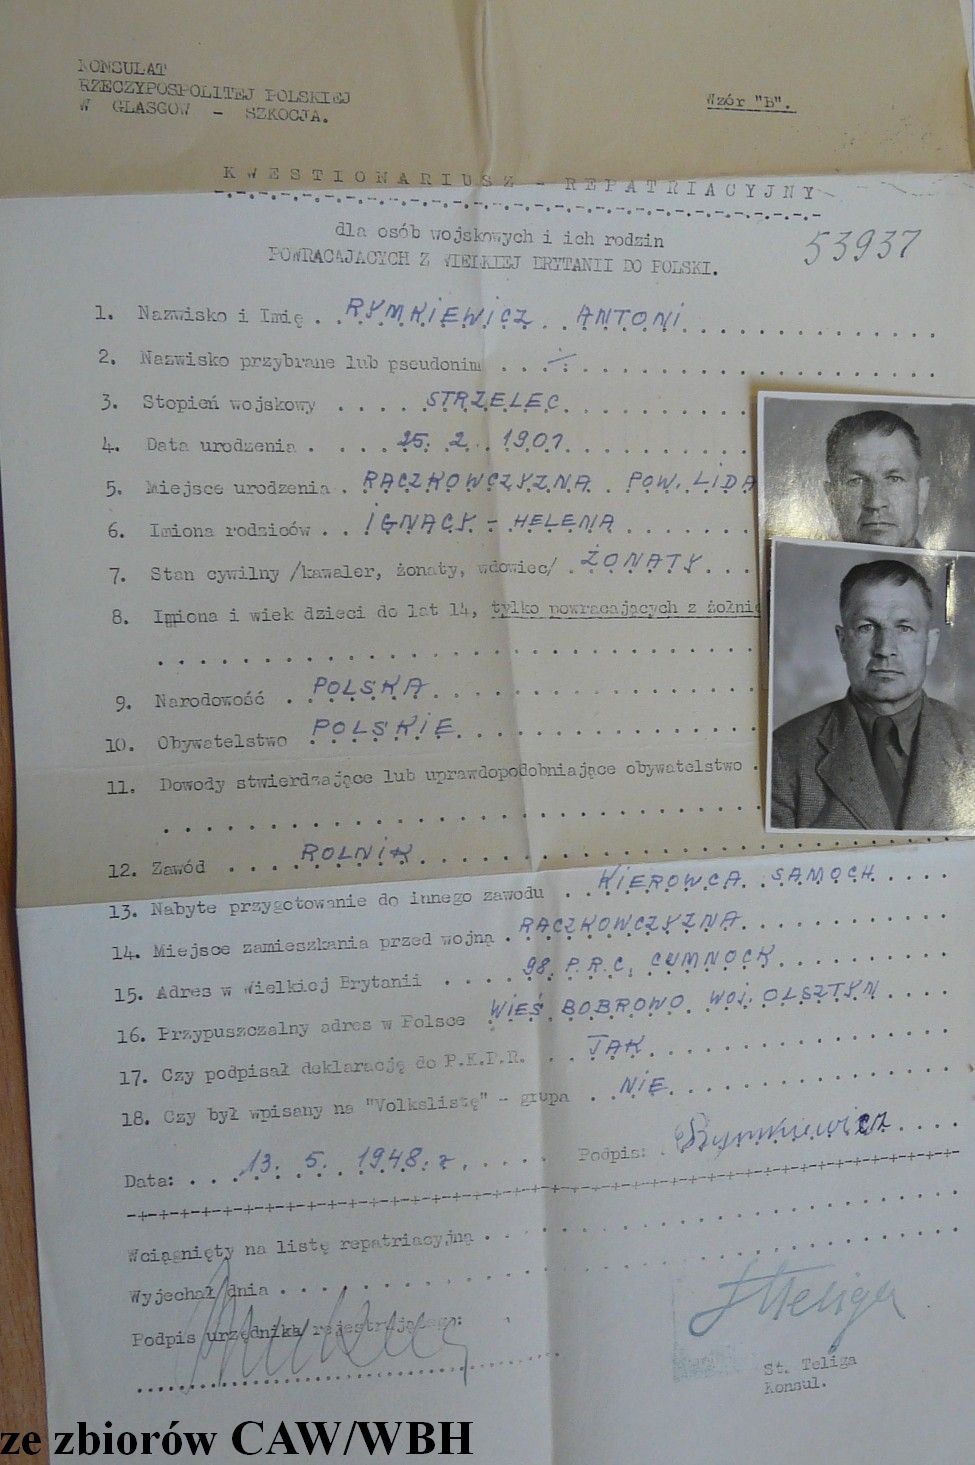 KONSULAT
RZECZYPOSPOLITEJ POLSKIEJ
W GLASGOW - SZKOCJA.
Wzór "B".
KWESTIONARIUSZ - REPATRIACYJNY
dla osób wojskowych i ich rodzin
POWRACAJĄCYCH Z WIELKIEJ BRYTANII DO POLSKI.
53937
1. Nazwisko i Imię . RYMKIEWICZ ANTONI
2. Nazwisko przybrane lub pseudonim . . . -/-
3. Stopień wojskowy . . . . STRZELEC
4. Data urodzenia . . . . 25. 2. 1901
5. Miejsce urodzenia . RACZKOWCZYZNA POW. LIDA
6. Imiona rodziców . . IGNACY - HELENA
7. Stan cywilny /kawaler, żonaty, wdowiec/ . ŻONATY
8. Imiona i wiek dzieci do lat 14, tylko powracających z żołnie
9. Narodowość . POLSKA
10. Obywatelstwo POLSKIE
11. Dowody stwierdzające lub uprawdopodobniające obywatelstwo .
12. Zawód . . . ROLNIK
13. Nabyte przygotowanie do innego zawodu . . KIEROWCA SAMOCH
14. Miejsce zamieszkania przed wojną . RACZKOWCZYZNA
15. Adres w Wielkiej Brytanii . . . . 98. P.R.C. CUMNOCK
16. Przypuszczalny adres w Polsce WIEŚ BOBROWO WOJ. OLSZTYN
17. Czy podpisał deklarację do P.K.P.R. . . TAK
18. Czy był wpisany na "Volkslistę" - grupa . . NIE
Data: . . . 13. 5. 1948. r Podpis: . Rymkiewicz
Wciągnięty na listę repatriacyjną
Wyjechał dnia
Podpis urzędnika rejestrującego:
STeliga
St. Teliga
Konsul.
ze zbiorów CAW/WBH